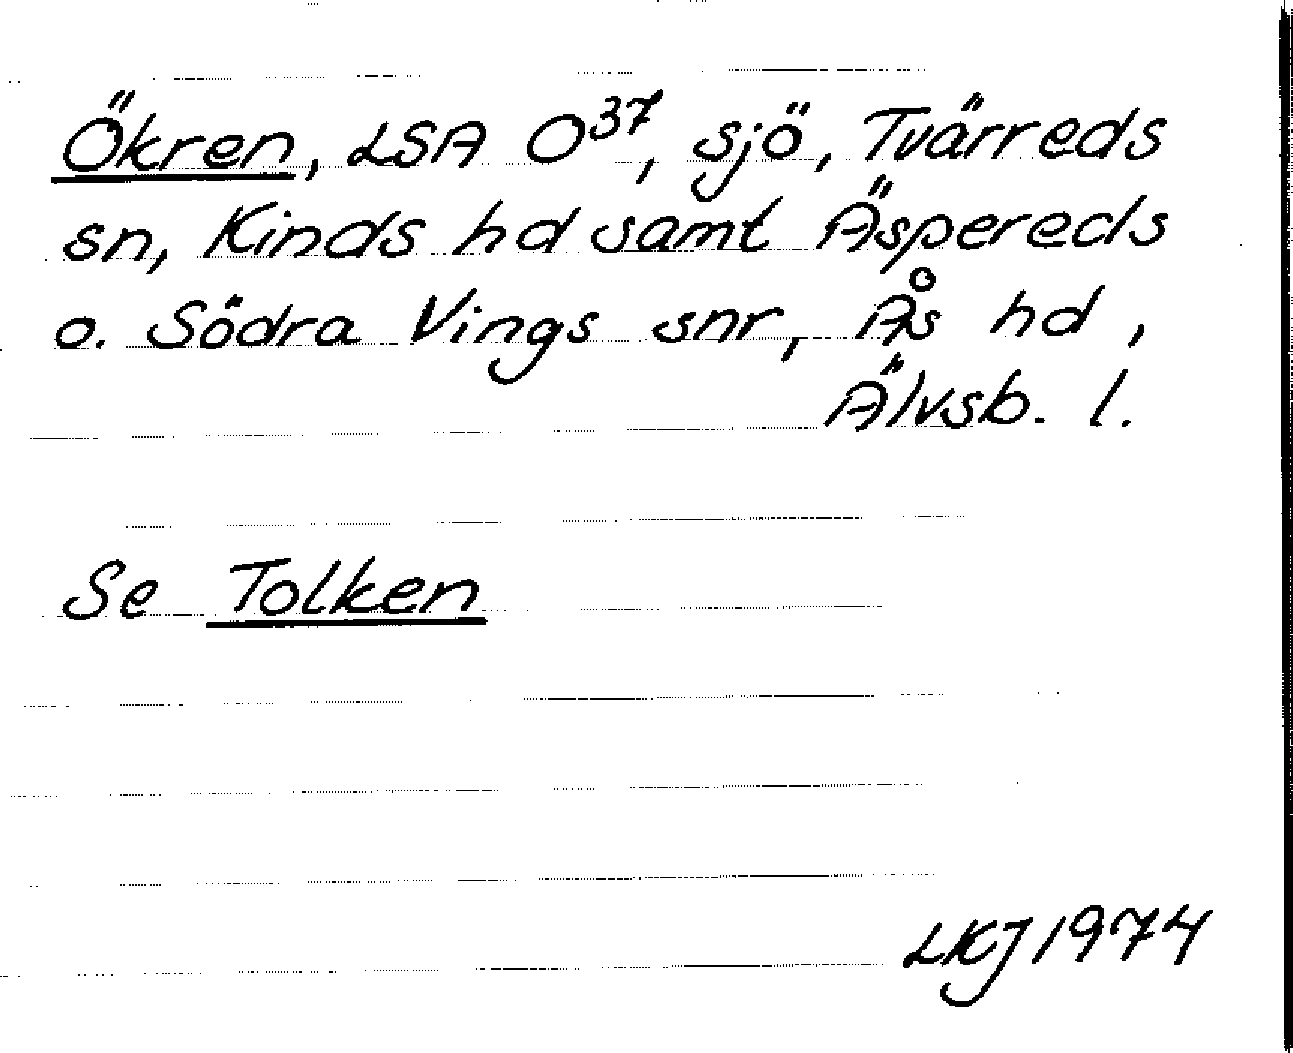 Ökren, LSA O³⁷, sjö, Tvärreds
sn, Kinds hd samt Äspereds
o. Södra Vings snr, Ås hd,
Älvsb. l.
Se Tolken
LKJ 1974